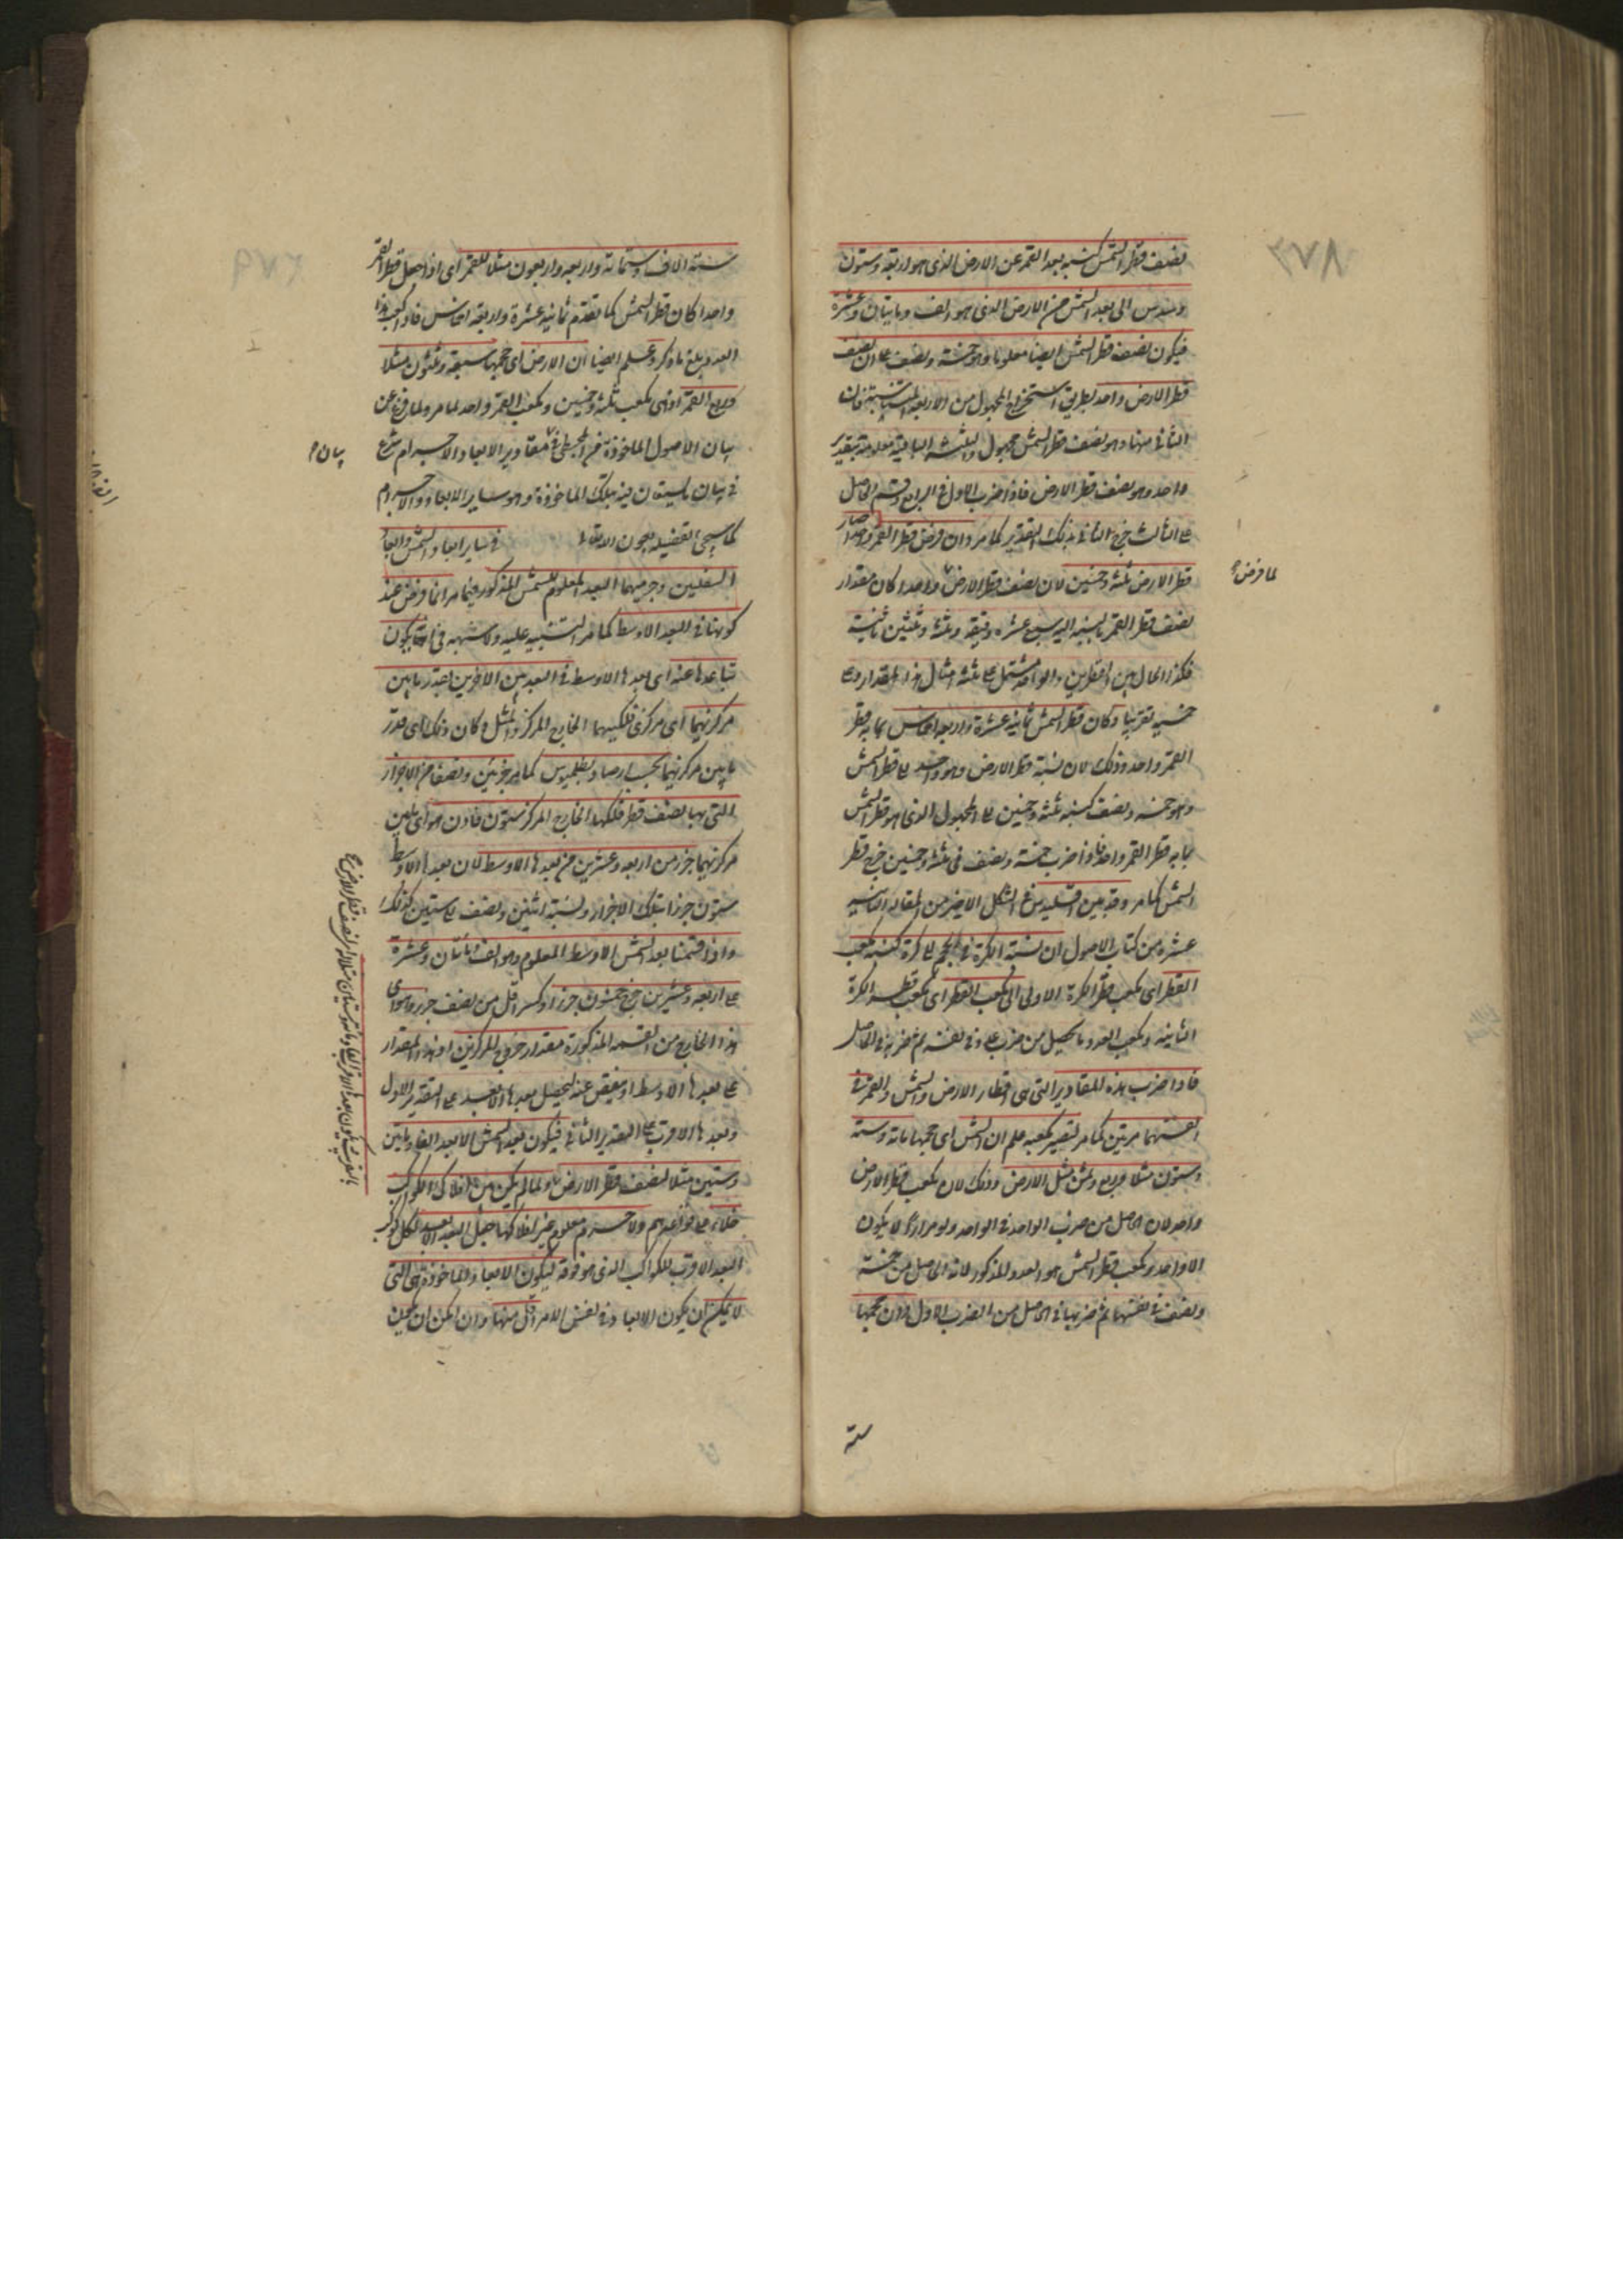 ٣٧٨
نصف قطر الشمس كنسبة بعد القمر عن الارض الذى هو اربعة وستون
وسدس الى بعد الشمس من الارض الذى هو الف ومايتان وعشرة
فيكون نصف قطر الشمس ايضا معلوما وهو خمسة ونصف على ان نصف
قطر الارض واحد بطريق استخراج المجهول من الاربعة المتناسبة فان
الثانى منها وهو نصف قطر الشمس مجهول والثلثة الباقية معلومة بتقدير
واحد وهو نصف قطر الارض فاذا ضرب الاول فى الرابع وقسم الحاصل
على الثالث خرج الثانى بذلك التقدير كما مر وان فرض قطر القمر واحدا صار
قطر الارض ثلثة وخمسين لان نصف قطر الارض واحدا كان مقدار
لما فرض
نصف قطر القمر بالنسبة اليه سبع عشرة دقيقة وثلثا وثلثين ثانية
فكذا الحال بين القطرين والواحد مشتمل على ثلثة امثال هذا المقدار وعلى
خمسيه تقريبا وكان قطر الشمس ثمانية عشرة واربعة اخماس بما به قطر
القمر واحد وذلك لان نسبة قطر الارض وهو واحد الى قطر الشمس
وهو خمسة ونصف كنسبة ثلثة وخمسين الى المجهول الذى هو قطر الشمس
بما به قطر القمر واحد فاذا ضرب خمسة ونصف فى ثلثة وخمسين خرج قطر
الشمس كما مر وقد بين اقليدس فى الشكل الاخير من المقالة الثانية
عشرة من كتاب الاصول ان نسبة الكرة فى الحجم الى كرة كنسبة مكعب
القطر اى مكعب قطر الكرة الاولى الى مكعب القطر اى مكعب قطر الكرة
الثانية ومكعب العدد ما يحصل من ضرب عدد فى نفسه ثم ضربه فى الحاصل
فاذا ضرب هذه المقادير التى هى اقطار الارض والشمس والقمر فى
انفسها مرتين كما مر لتصير مكعبة علم ان الشمس اى حجمها ماية وستة
وستون مثلا وربع وثمن مثل الارض وذلك لان مكعب قطر الارض
واحد لان الحاصل من ضرب الواحد فى الواحد ولو مرارا لا يكون
الا واحدا ومكعب قطر الشمس هو العدد المذكور لانه الحاصل من خمسة
ونصف فى نفسها ثم ضربها فى الحاصل من الضرب الاول وان حجمها
ستة
ستة الاف وستمائة واربعة واربعون مثلا للقمر اى اذا جعل قطر القمر
واحدا كان قطر الشمس كما تقدم ثمانية عشرة واربعة اخماس فاذا كعب هذا
العدد بلغ ما ذكر وعلم ايضا ان الارض اى حجمها سبعة وثلثون مثلا
وربع القمر اذ هى مكعب ثلثة وخمسين ومكعب القمر واحد لما مر ولما فرغ عن
بيان الاصول الماخوذة من المجسطى فى مقادير الابعاد والاجرام شرع
بيان
فى بيان ما يستعان فيه بتلك الماخوذة وهو ساير الابعاد والاجرام
كما سيجى تفصيله بعون الله تعالى فى ساير ابعاد الشمس وابعاد
السفليين وجرميهما البعد المعلوم للشمس المذكور فيما مر انما فرض عند
كونها فى البعد الاوسط كما مر التنبيه عليه
تباعدها عنه اى بعدها الاوسط فى البعدين الاخرين بقدر ما بين
مركزيهما اى مركزى فلكيهما الخارج المركز والممثل وكان ذلك اى قدر
ما بين مركزيهما بحسب ارصاد بطلميوس كما مر جزئين ونصفا من الاجزاء
التى بها نصف قطر فلكها الخارج المركز ستون فاذن هو اى ما بين
مركزيهما جزء من اربعة وعشرين من بعدها الاوسط لان بعدها الاوسط
ستون جزءا بتلك الاجزاء ونسبة اثنين ونصف الى ستين كذلك
واذا قسمنا بعد الشمس الاوسط المعلوم وهو الف ومائتان وعشرة
على اربعة وعشرين خرج خمسون جزءا وكسر اقل من نصف جزء وسوى
هذا الخارج من القسمة المذكورة مقدار خروج المركزين او هذا المقدار
على بعدها الاوسط او ينقص عنه ليحصل بعدها الابعد على التقدير الاول
وبعدها الاقرب على التقدير الثانى فيكون بعد الشمس الابعد الفا ومايتين
وستين مثلا لنصف قطر الارض ولما لم يكن بين افلاك الكواكب
خلاء على قواعدهم ولا جرم معلوم غير افلاكها جعل البعد الابعد لكل كوكب
البعد الاقرب للكواكب الذى هو فوقه ليكون الابعاد الماخوذة هى التى
لا يمكن ان يكون الابعاد فى نفس الامر اقل منها وان امكن ان يكون